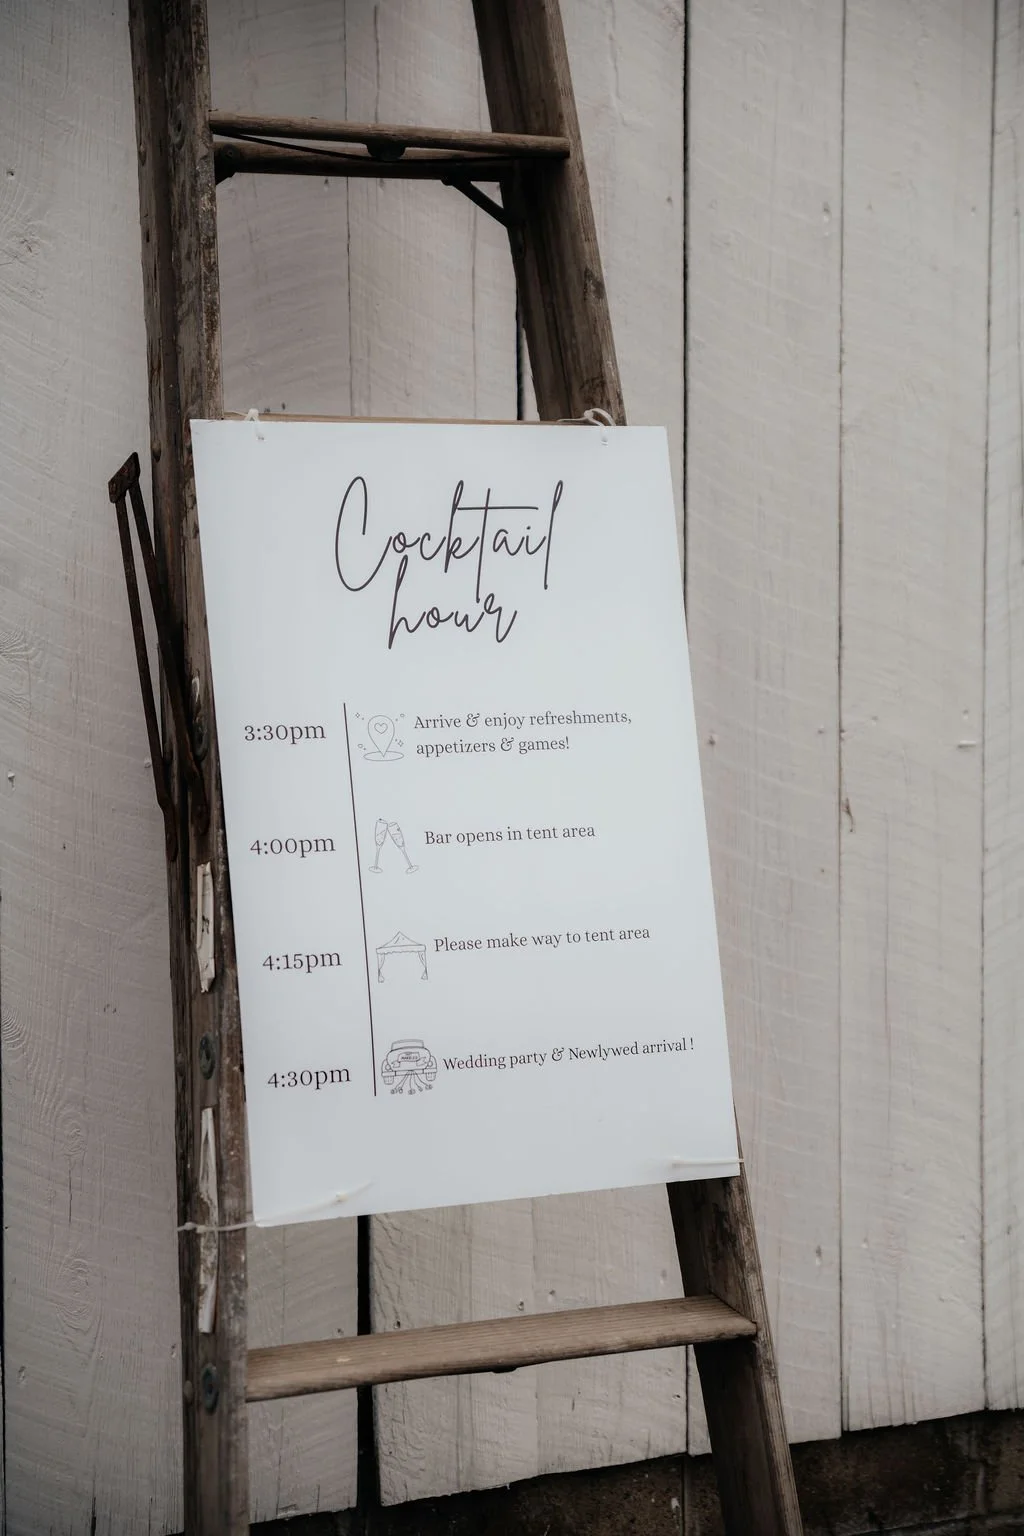 Cocktail
hour
3:30pm
Arrive & enjoy refreshments,
appetizers & games!
4:00pm
Bar opens in tent area
4:15pm
Please make way to tent area
4:30pm
Wedding party & Newlywed arrival !